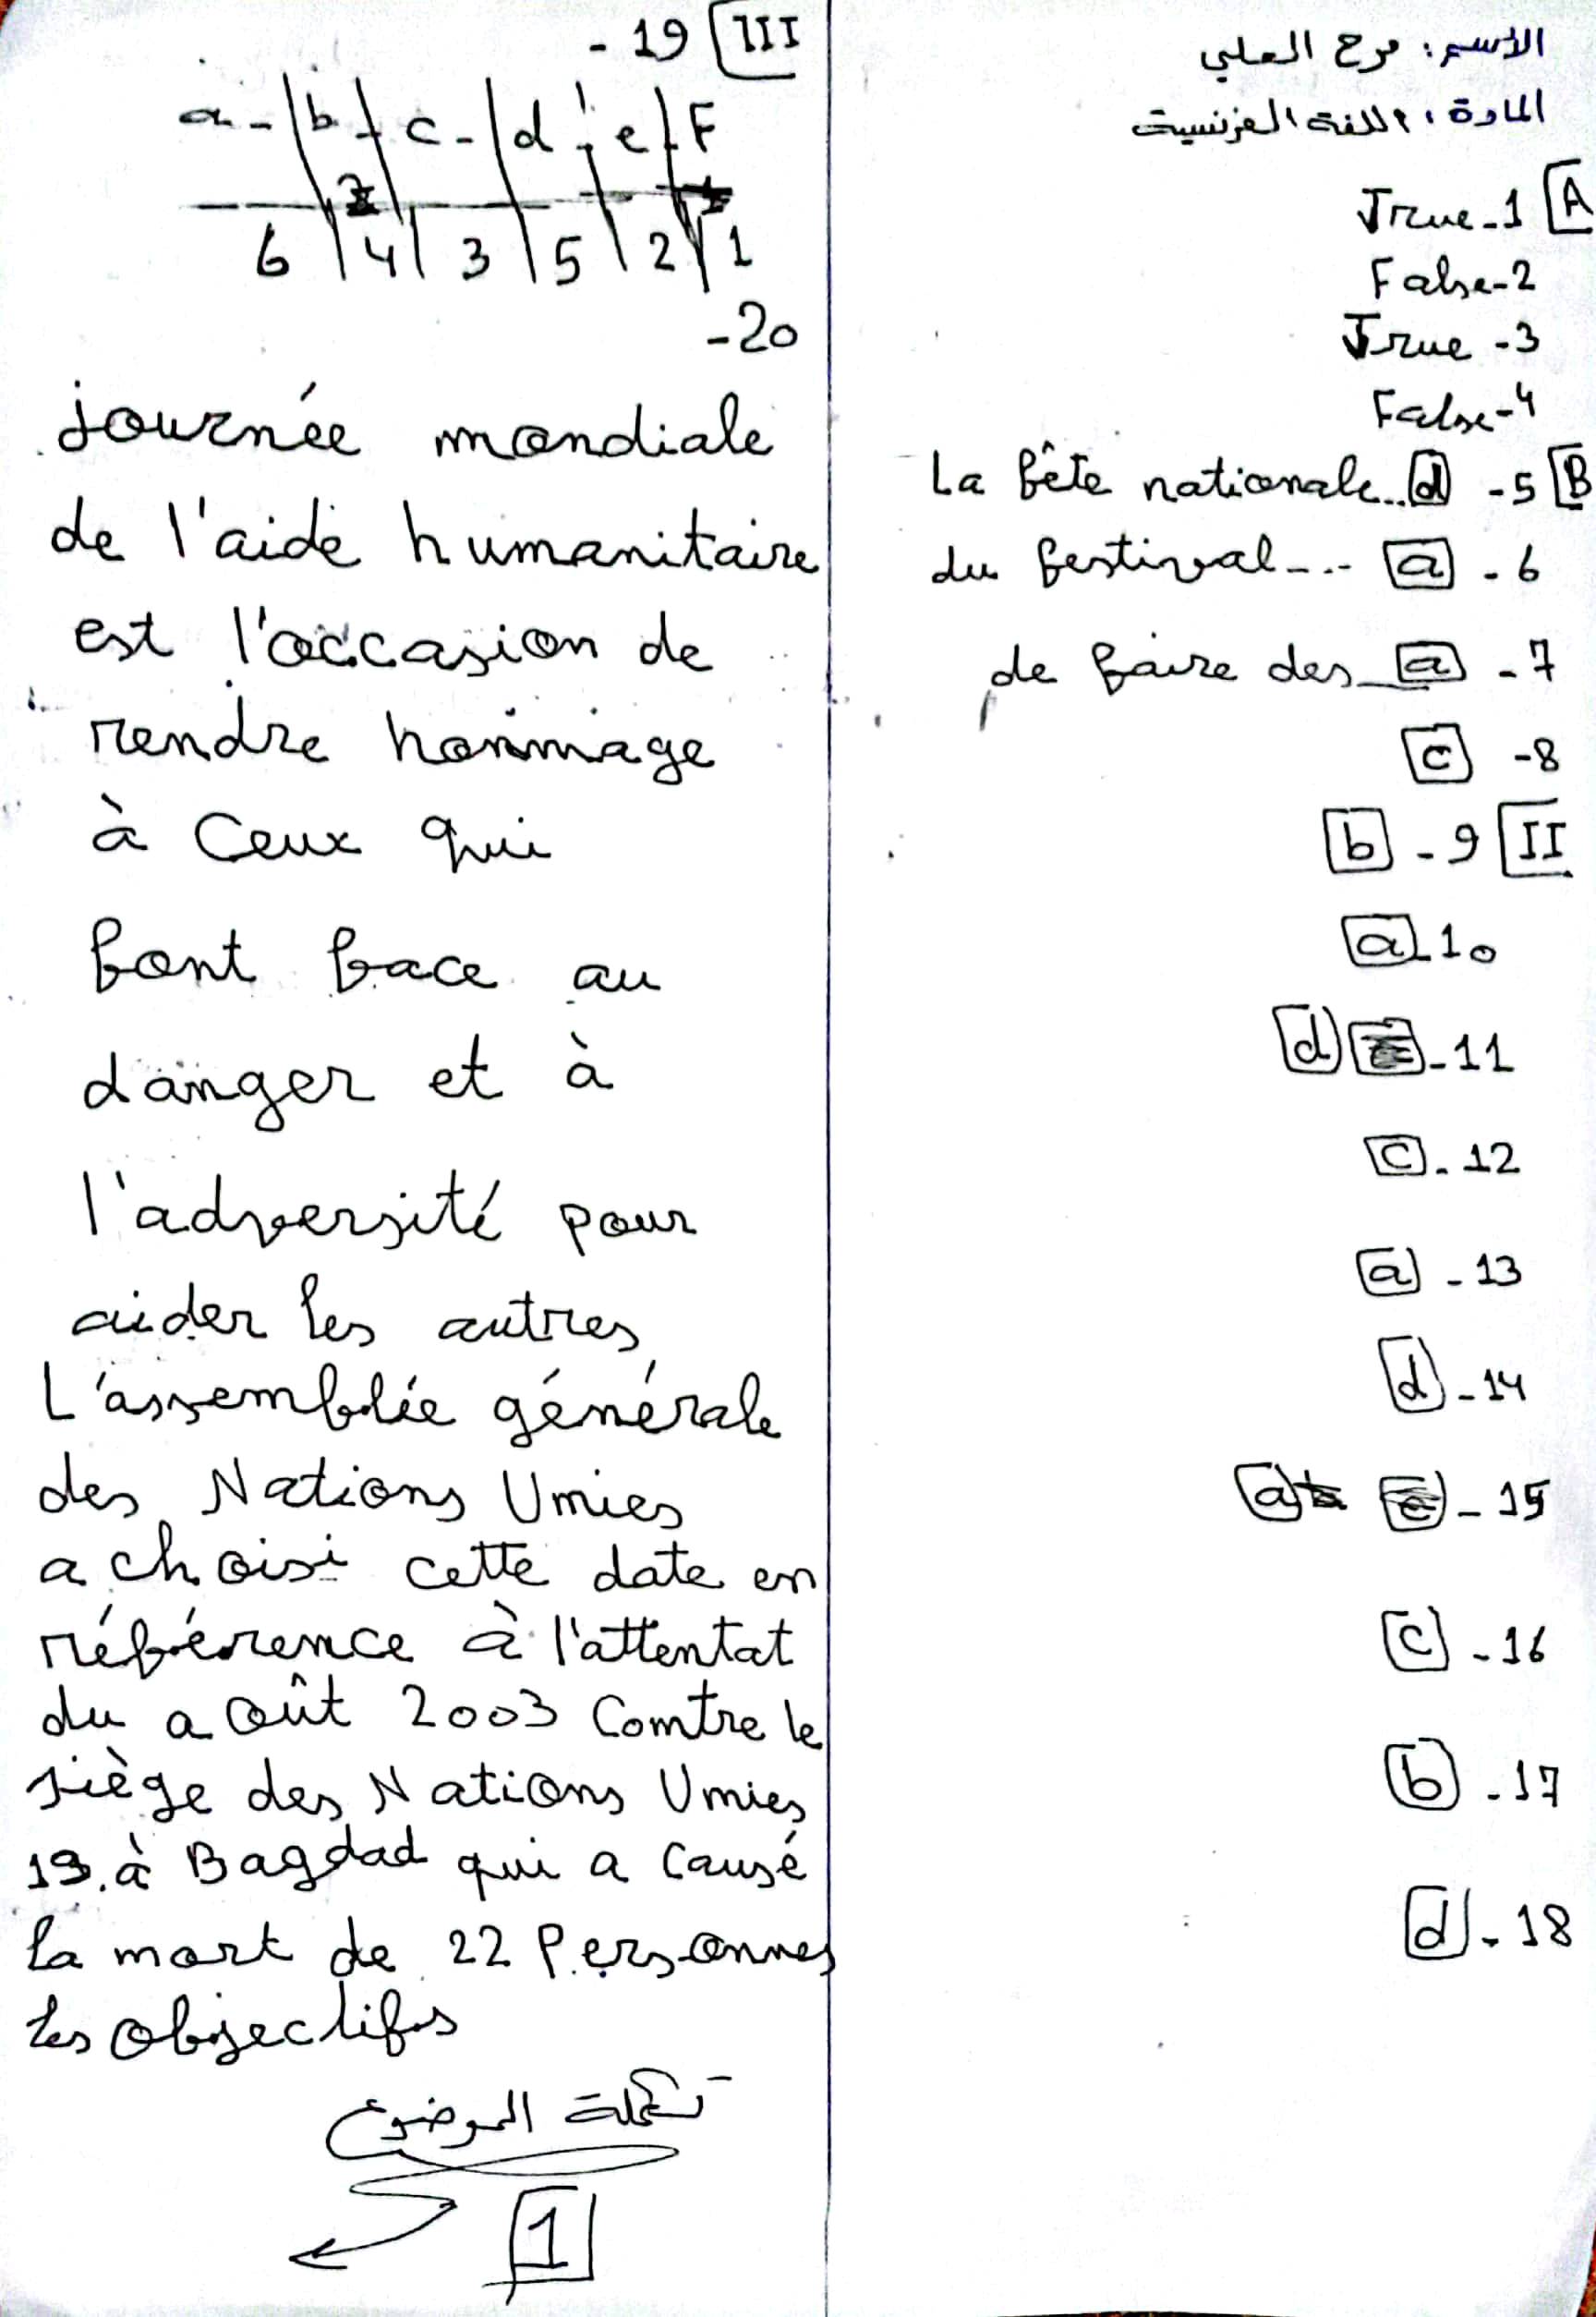 الأسم: مرح العلي
المادة: اللغة الفرنسية
A 1- True
2- False
3- True
4- False
B 5- d La fête nationale..
6- a du festival---
7- a de faire des
8- c
II 9- b
10- a
11- d
12- c
13- a
14- d
15- a
16- c
17- b
18- d
III 19-
a- b- c- d- e- F
6 4 3 5 2 1
20-
journée mondiale
de l'aide humanitaire
est l'occasion de
rendre hommage
à Ceux qui
font face au
danger et à
l'adversité pour
aider les autres,
L'assemblée générale
des Nations Umies
a choisi cette date en
référence à l'attentat
du a oût 2003 Comtre le
siège des Nations Umies
19. à Bagdad qui a causé
la mort de 22 Personnes
les objectifs
تكملة الموضوع
1